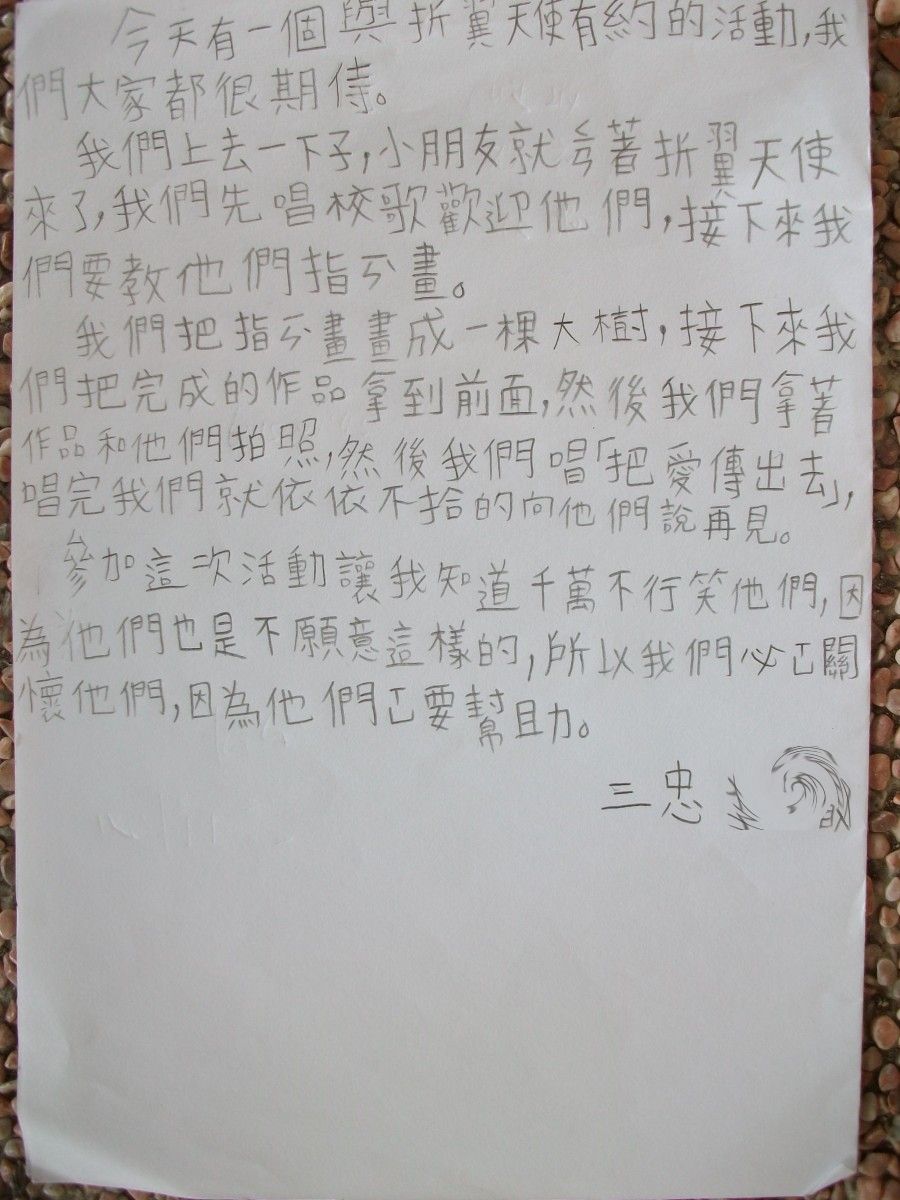 今天有一個與折翼天使有約的活動,我
們大家都很期待。
我們上去一下子,小朋友就ㄑㄧㄢ著折翼天使
來了,我們先唱校歌歡迎他們,接下來我
們要教他們指ㄧㄣˋ畫。
我們把指ㄧㄣˋ畫畫成一棵大樹,接下來我
們把完成的作品拿到前面,然後我們拿著
作品和他們拍照,然後我們唱「把愛傳出去」,
唱完我們就依依不拾的向他們說再見。
參加這次活動讓我知道千萬不行笑他們,因
為他們也是不願意這樣的,所以我們必ㄒㄩ關
懷他們,因為他們ㄒㄩ要幫助。
三忠